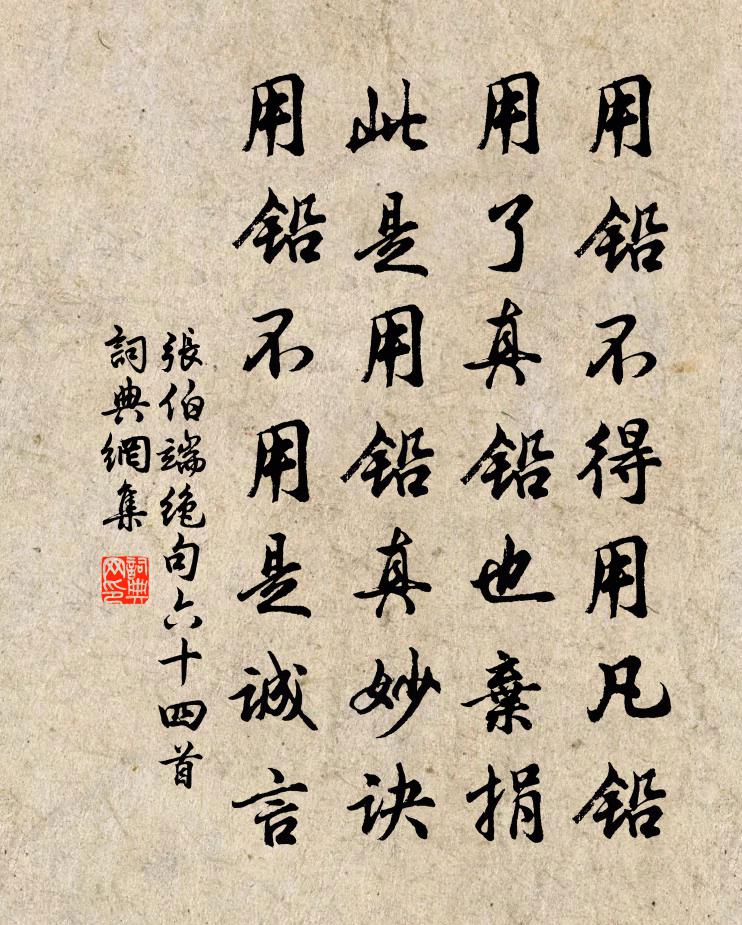 用铅不得用凡铅
用了真铅也棄捐
此是用铅真妙诀
用铅不用是诚言
張伯端绝句六十四首
詞典網集
詞典網印